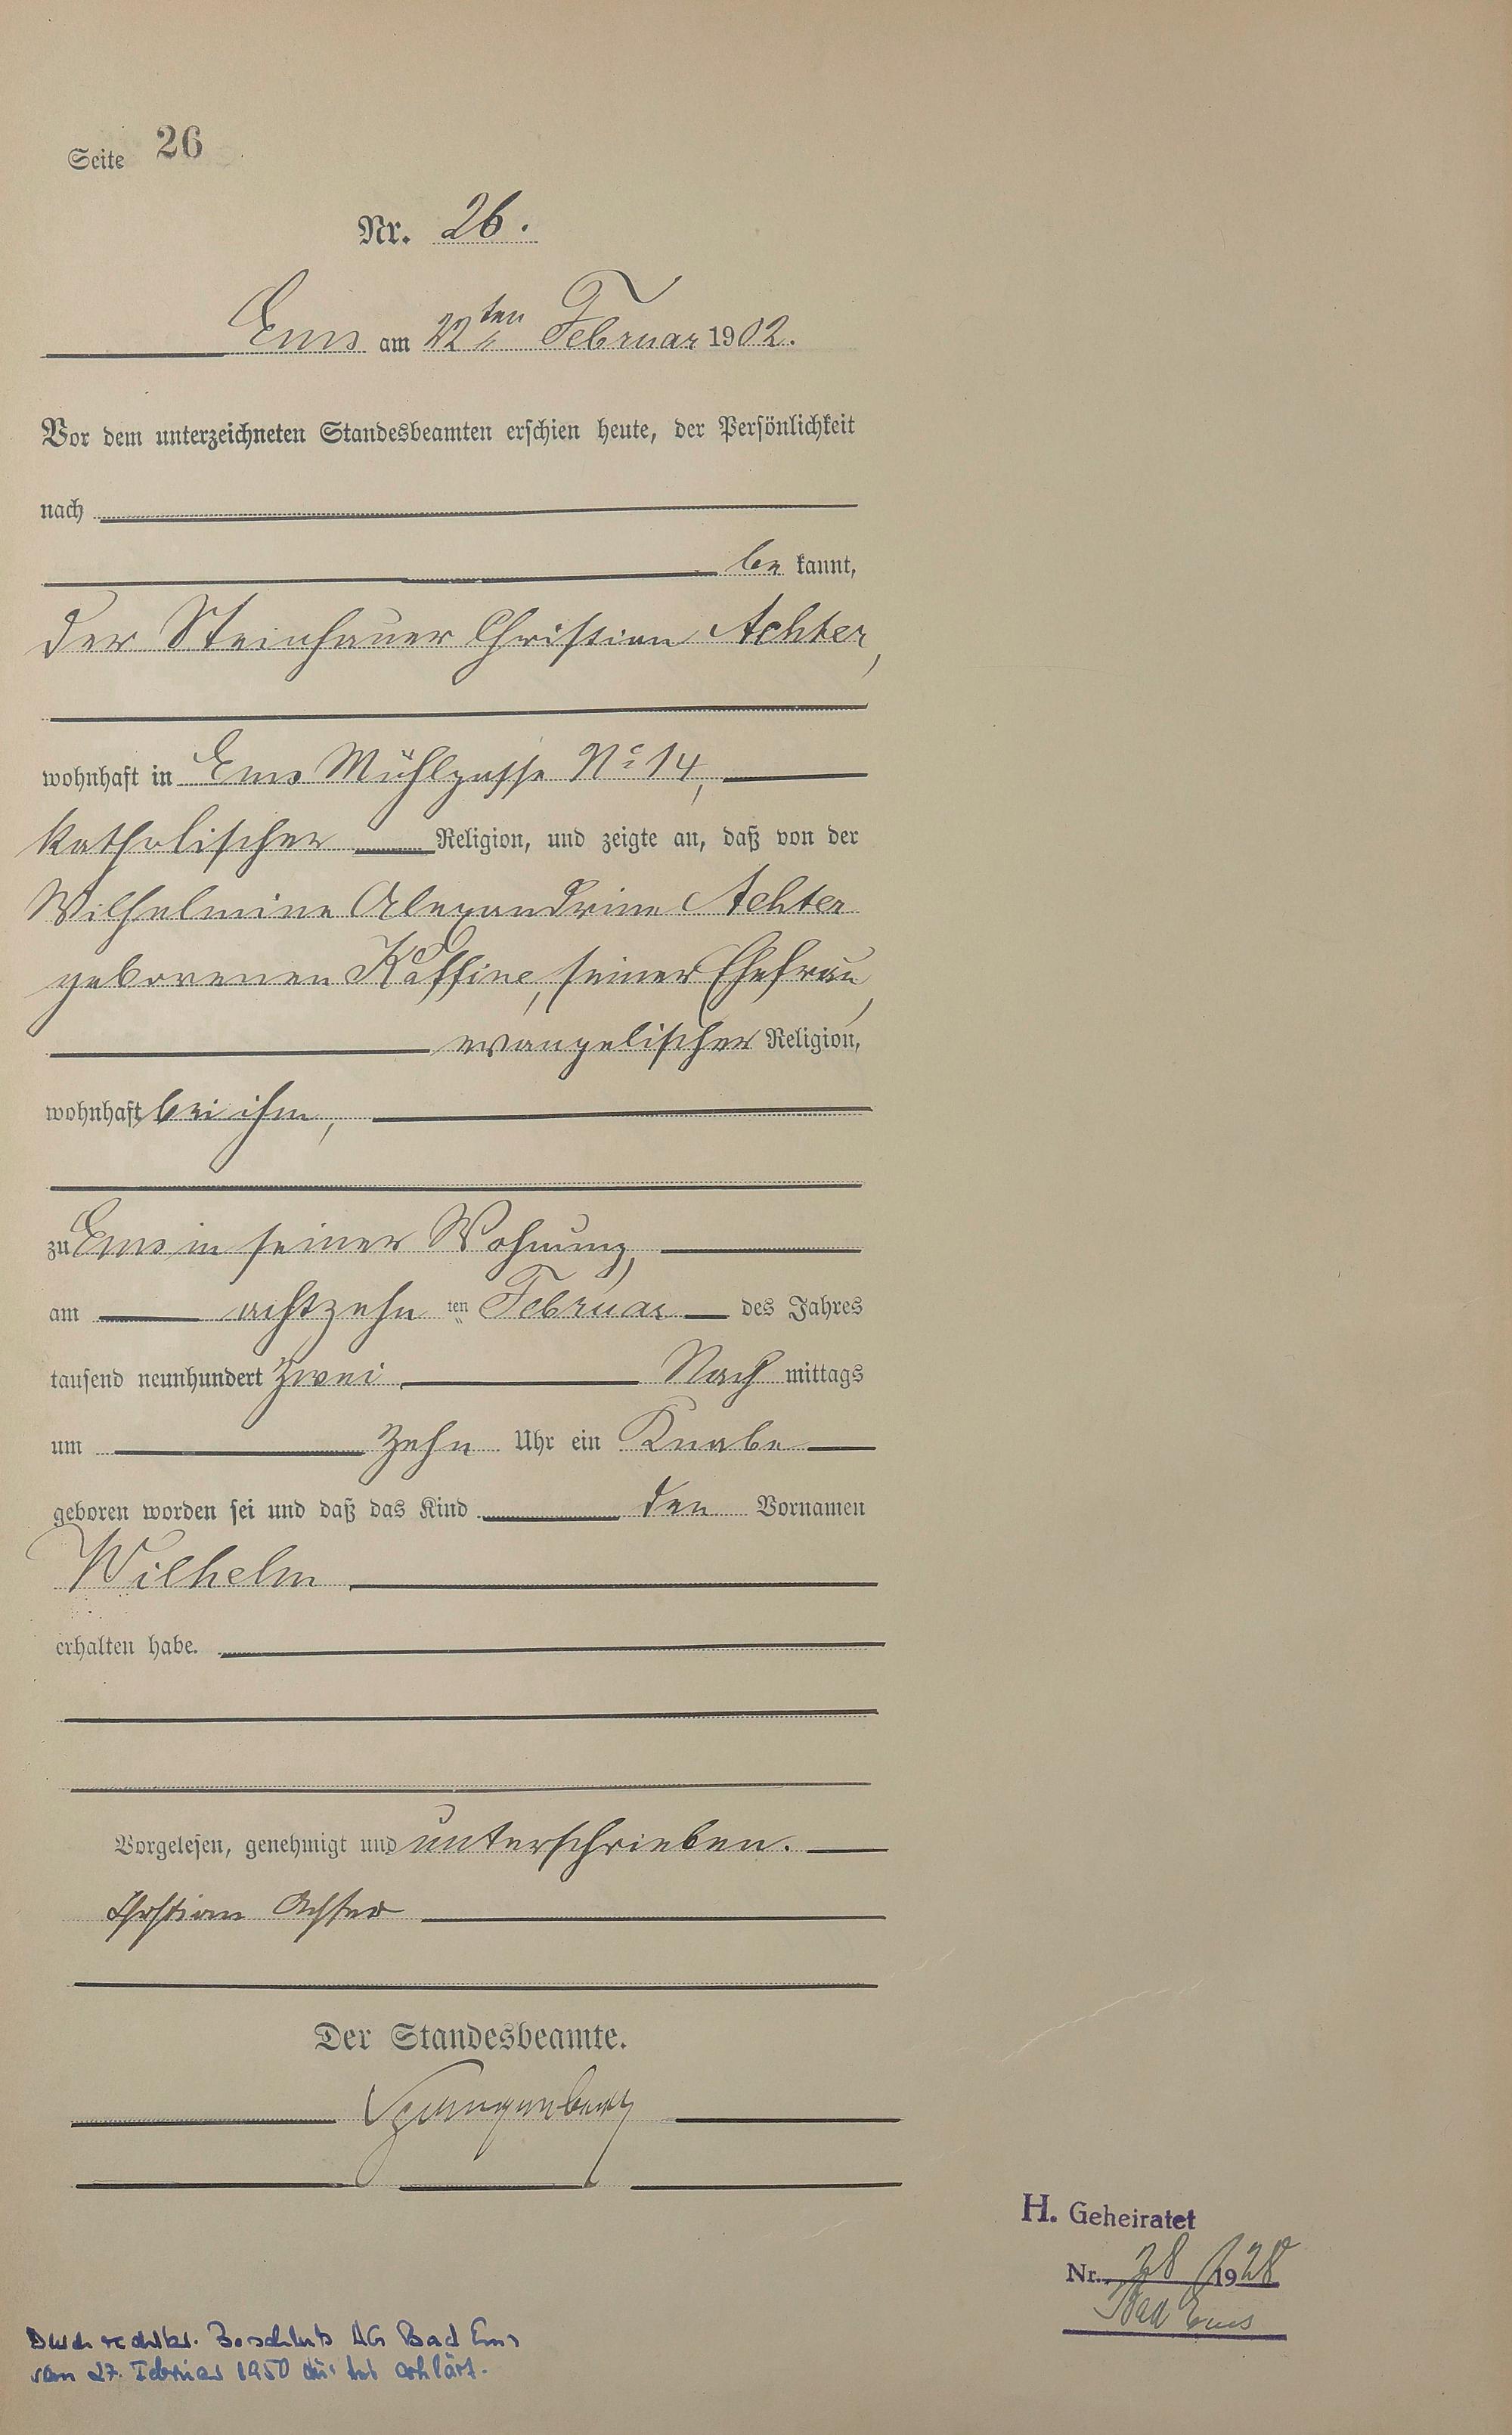 Seite 26
Nr. 26.
Ems am 22ten Februar 1902.
Vor dem unterzeichneten Standesbeamten erschien heute, der Persönlichkeit
nach
be kannt,
der Steinhauer Christian Achter,
wohnhaft in Ems Mühlgasse No 14,
katholischer Religion, und zeigte an, daß von der
Wilhelmine Alexandrine Achter
geborenen Kaffine, seiner Ehefrau,
evangelischer Religion,
wohnhaft bei ihm,
zu Ems in seiner Wohnung,
am achtzehn ten Februar des Jahres
tausend neunhundert zwei Nach mittags
um zehn Uhr ein Knabe
geboren worden sei und daß das Kind den Vornamen
Wilhelm
erhalten habe.
Vorgelesen, genehmigt und unterschrieben.
Christian Achter
Der Standesbeamte.
H. Geheiratet
Nr. 28 1928
Bad Ems
Durch rechtskr. Beschluß AG Bad Ems
vom 27. Februar 1950 für tot erklärt.